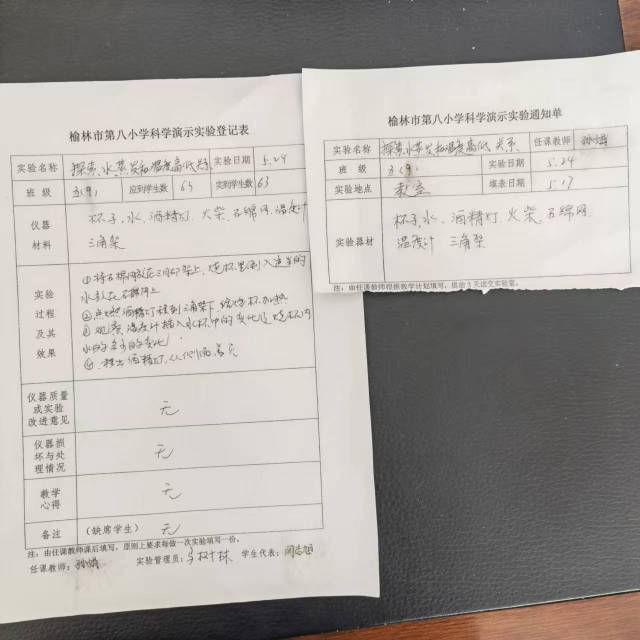 榆林市第八小学科学演示实验登记表
实验名称 探索水蒸发和温度高低关系 实验日期 5.24
班级 3(9) 应到学生数 63 实到学生数 63
仪器材料 杯子、水、酒精灯、火柴、石绵网、温度计
三角架
实验过程及其效果 ①将石棉网放在三角架上,烧杯里倒入适当的
水放在石棉网上
②点燃酒精灯放到三角架下,给烧杯加热
③观察温度计插入水杯中的变化及烧杯内
水的多少的变化
④
仪器质量或实验改进意见 无
仪器损坏与处理情况 无
教学心得 无
备注 (缺席学生) 无
注:由任课教师课后填写,原则上要求每做一次实验填写一份。
任课教师: 实验管理员: 学生代表:
榆林市第八小学科学演示实验通知单
实验名称 探索水蒸发和温度高低关系 任课教师
班级 3(9) 实验日期 5.24
实验地点 教室 填表日期 5.17
实验器材 杯子、水、酒精灯、火柴、石绵网
温度计 三角架
注:由任课教师根据教学计划填写,提前3天送交实验室。